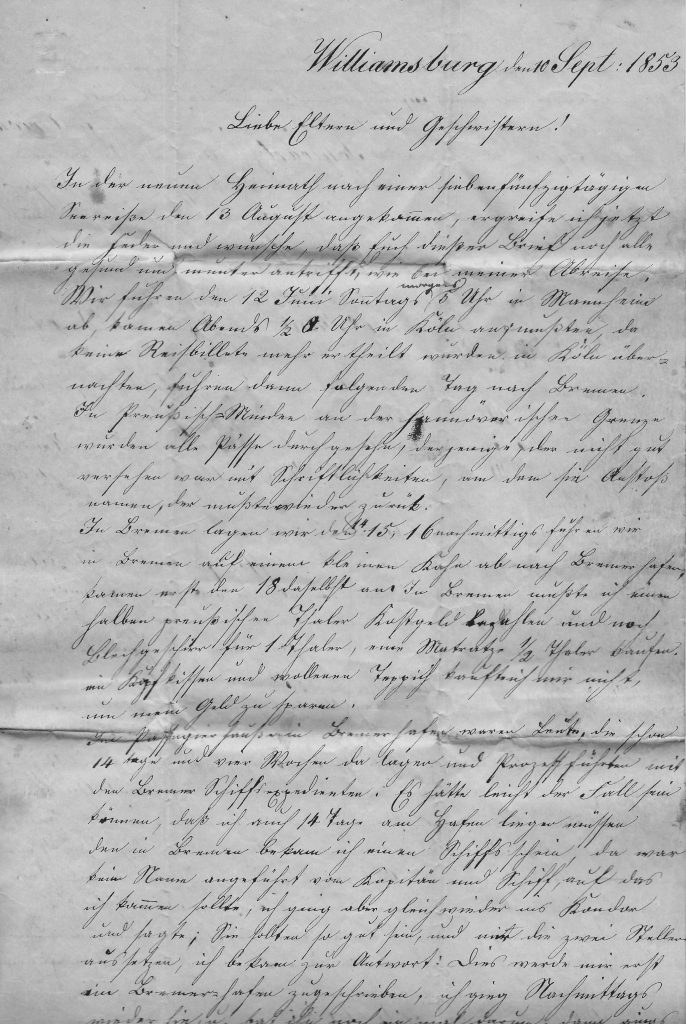 Williamsburg den 10 Sept: 1853
Liebe Eltern und Geschwistern!
In der neuen Heimath nach einer siebenfünfzigtägigen
Seereiße den 13 August angekommen, ergreife ich jetzt
die Feder und wünsche, daß Euch dießer Brief noch alle
gesund und munter antrifft, wie bei meiner Abreise.
Wir fuhren den 12 Juni Sonntags morgens 5 Uhr in Mannheim
ab, kamen Abends 1/2 8 Uhr in Köln an, mußten da
keine Reisbillete mehr ertheilt wurden in Köln über=
nachten, fuhren dann folgenden Tag nach Bremen.
In Preußisch=Minden an der hannöverischen Grenze
wurden alle Pässe durchgesehn, derjenige der nicht gut
versehen war mit Schriftlichkeiten, an dem sie Anstoß
namen, der mußte wieder zurük.
In Bremen lagen wir den 14 15, 16 nachmittigs fuhren wir
in Bremen auf einem kleinen Kahn ab nach Bremerhafen,
kamen erst den 18 daselbst an. In Bremen mußte ich einen
halben preußischen Thaler Kostgeld bezahlen und noch
Blechgeschirr für 1 Thaler, eine Matratze 1/2 Thaler kaufen.
ein Kopfkissen und wollenen Teppich kaufte ich mir nicht,
um mein Geld zu sparen.
Im Passagierhauße in Bremerhafen waren Leute, die schon
14 tage und vier Wochen da lagen und Prozeß führten mit
den Bremer Schiffsexpedienten. Es hätte leicht der Fall sein
können, daß ich auch 14 Tage am Hafen liegen müssen
den in Bremen bekam ich einen Schiffsschein, da war
kein Name angeführt vom Kapitän und Schiff, auf das
ich kommen sollte, ich ging aber gleich wieder ins Kondor
und sagte; Sie sollten so gut sein, und mir die zwei Stellen
aussetzen, ich bekam zur Antwort: Dies werde mir erst
in Bremer=hafen zugeschrieben, ich ging Nachmittags
wieder hin